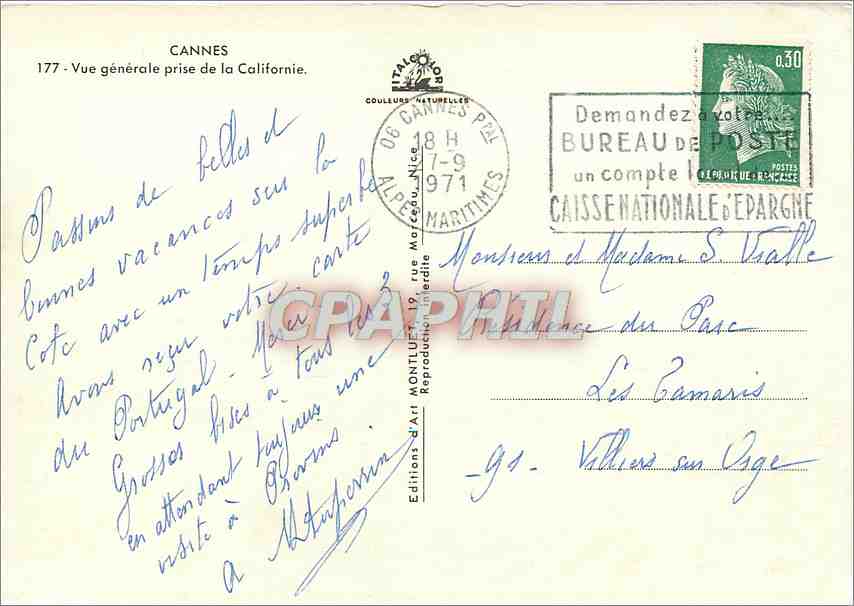 CANNES
177 - Vue générale prise de la Californie.
ITALCOLOR
COULEURS NATURELLES
Passons de belles et
bonnes vacances sur la
Côte avec un temps superbe
Avons reçu votre carte
du Portugal - Merci
Grosses bises à tous les 3
en attendant toujours une
visite à Provins.
06 CANNES Pᵖᵃˡ
18 H
7-9
1971
ALPES MARITIMES
Demandez à votre
BUREAU DE POSTE
un compte
CAISSE NATIONALE D'EPARGNE
0,30
POSTES
REPUBLIQUE FRANCAISE
Editions d'Art MONTLUET, 19, rue Marceau, Nice
Reproduction interdite
CPAPHIL
Monsieur et Madame S. Vialle
Résidence du Parc
Les Tamaris
-91- Villiers sur Orge